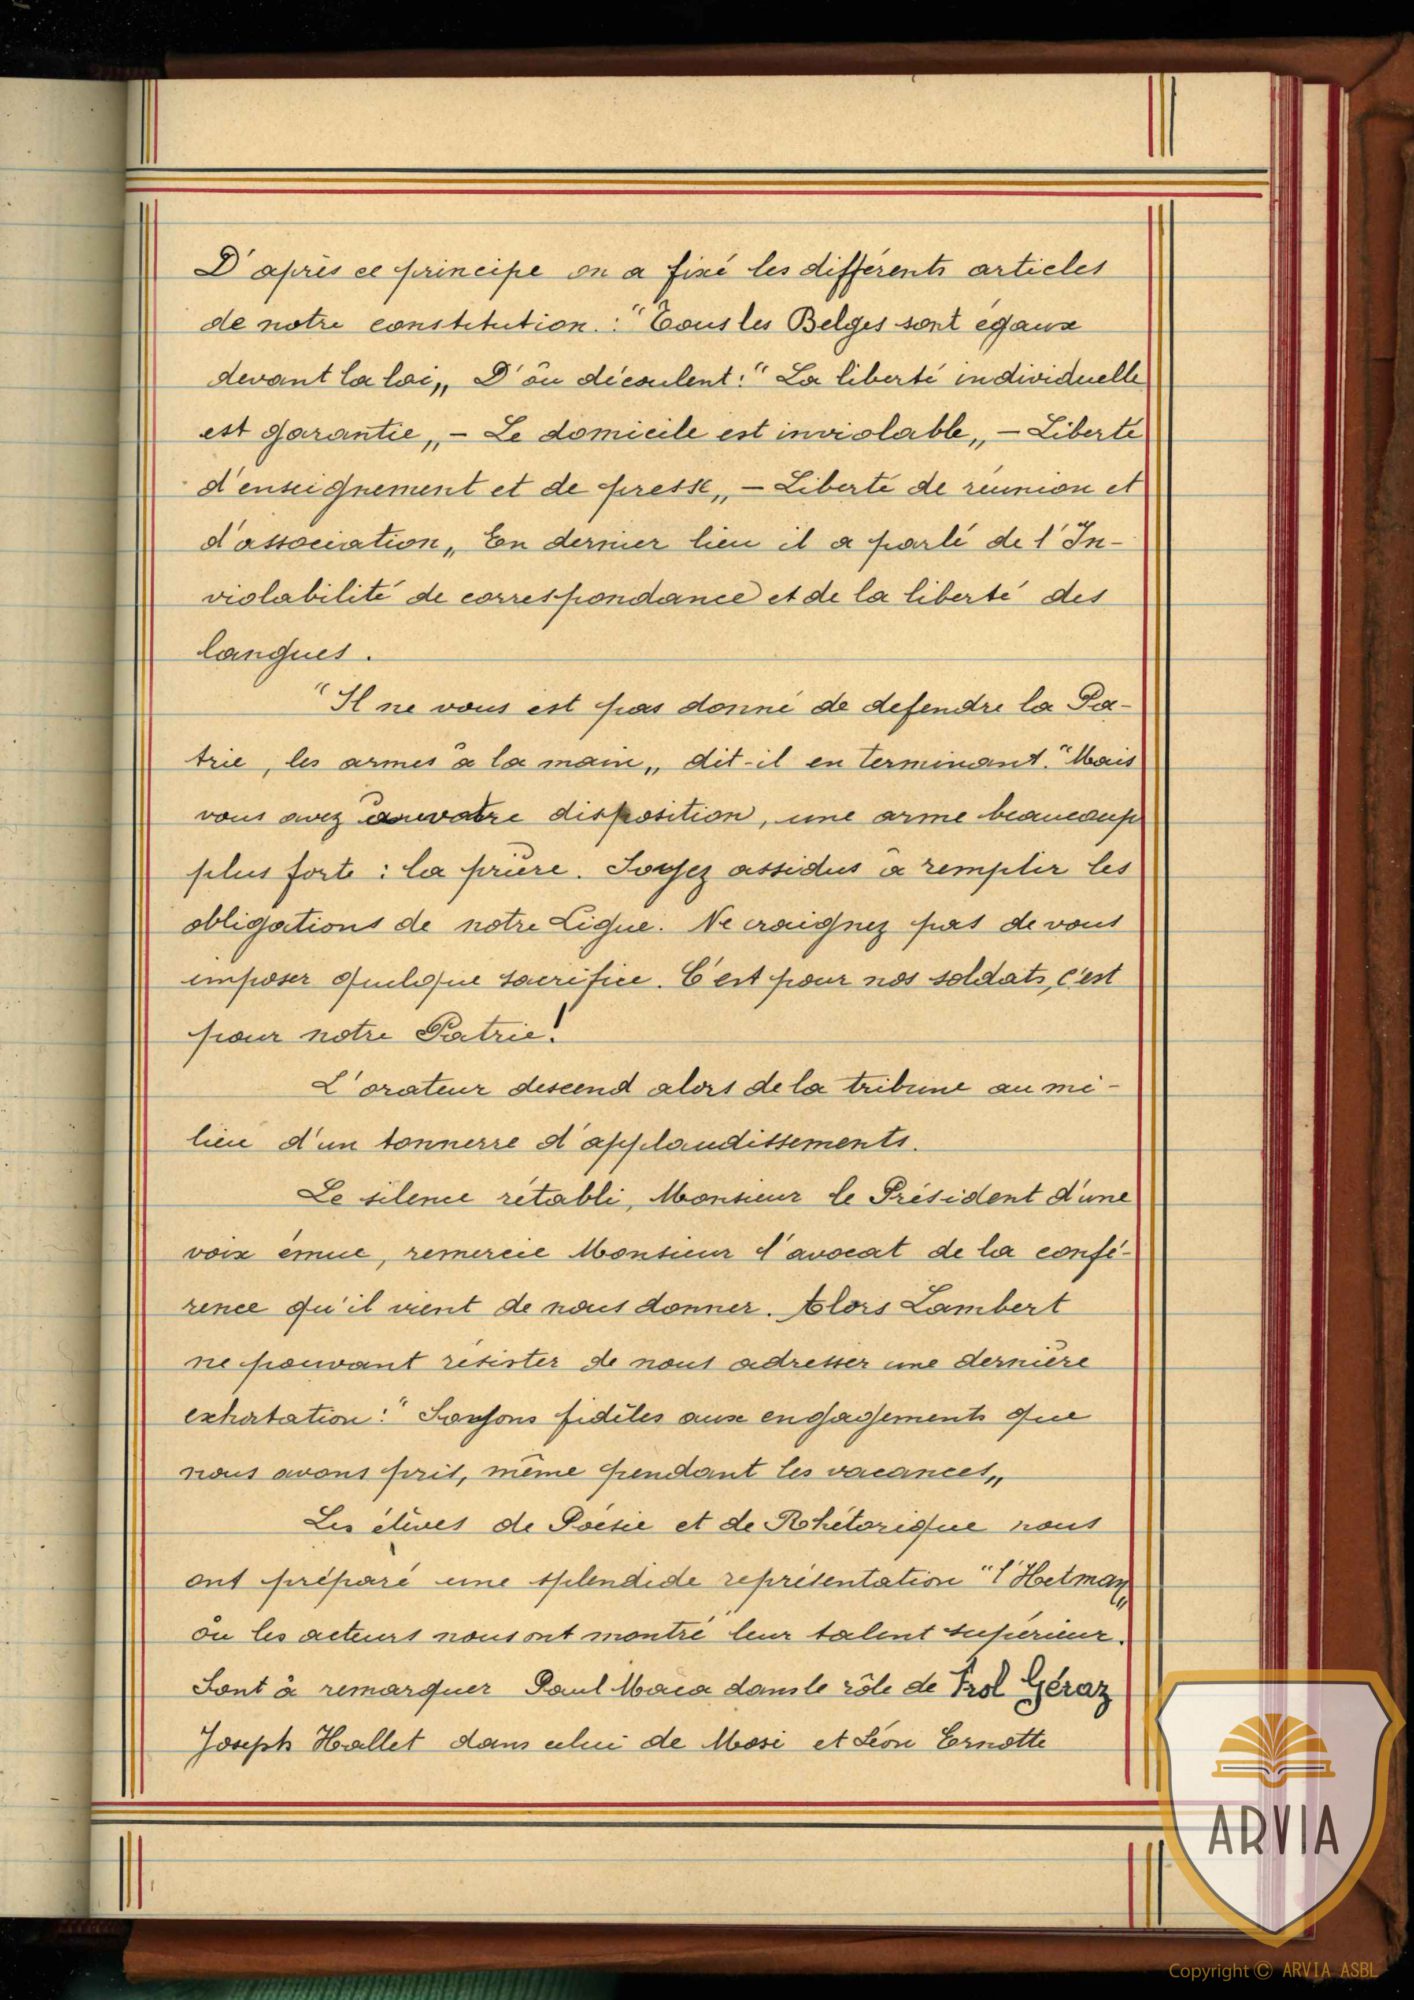 D'après ce principe on a fixé les différents articles
de notre constitution. : "Tous les Belges sont égaux
devant la loi„ D'où découlent : "La liberté individuelle
est garantie„ - Le domicile est inviolable„ - Liberté
d'enseignement et de presse„ - Liberté de réunion et
d'association„ En dernier lieu il a parlé de l'In-
violabilité de correspondance et de la liberté des
langues.
"Il ne vous est pas donné de defendre la Pa-
trie, les armes à la main„ dit-il en terminant. "Mais
vous avez à votre disposition, une arme beaucoup
plus forte : la prière. Soyez assidus à remplir les
obligations de notre Ligue. Ne craignez pas de vous
imposer quelque sacrifice. C'est pour nos soldats, c'est
pour notre Patrie!
L'orateur descend alors de la tribune au mi-
lieu d'un tonnerre d'applaudissements.
Le silence rétabli, Monsieur le Président d'une
voix émue, remercie Monsieur l'avocat de la confé-
rence qu'il vient de nous donner. Alors Lambert
ne pouvant résister de nous adresser une dernière
exhortation : "Soyons fidèles aux engagements que
nous avons pris, même pendant les vacances„
Les élèves de Poésie et de Rhétorique nous
ont préparé une splendide représentation "l'Hetman„
où les acteurs nous ont montré leur talent supérieur.
Sont à remarquer Paul Maca dans le rôle de Frol Géraz
Joseph Hallet dans celui de Mosi et Léon Ernotte
ARVIA
Copyright © ARVIA ASBL